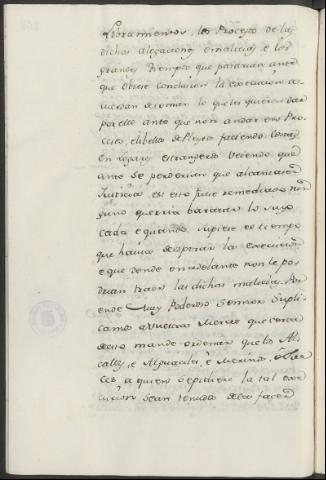 Libramientos, los Procesos de las
dichas alegaciones e malicias e los
grandes tiempos que pasarian ante
que obiese conclusion la execucion a
cuerdan de tomar lo que les quieren dar
por ello ante que non andar en Pro
ceso, e libelos de Pleytos faciendo costas
en logares estrangeros veiendo que
ante se perderian que alcanzasen
Justicia e si esto fuese remediado nin
guno querria baratar lo suyo
cada e quando supiese el tiempo
que havia de esperar la execucion
e que dende en adelante non le po
drian traer las dichas malicias Por
ende Muy Poderoso Sennor Supli
camos a vuestra Merced que cerca
desto mande ordenar que los Al
calles, e Alguaciles, e Merinos, o Jue
ces, a quien se pidiere la tal exe
cucion sean tenudos de la facer